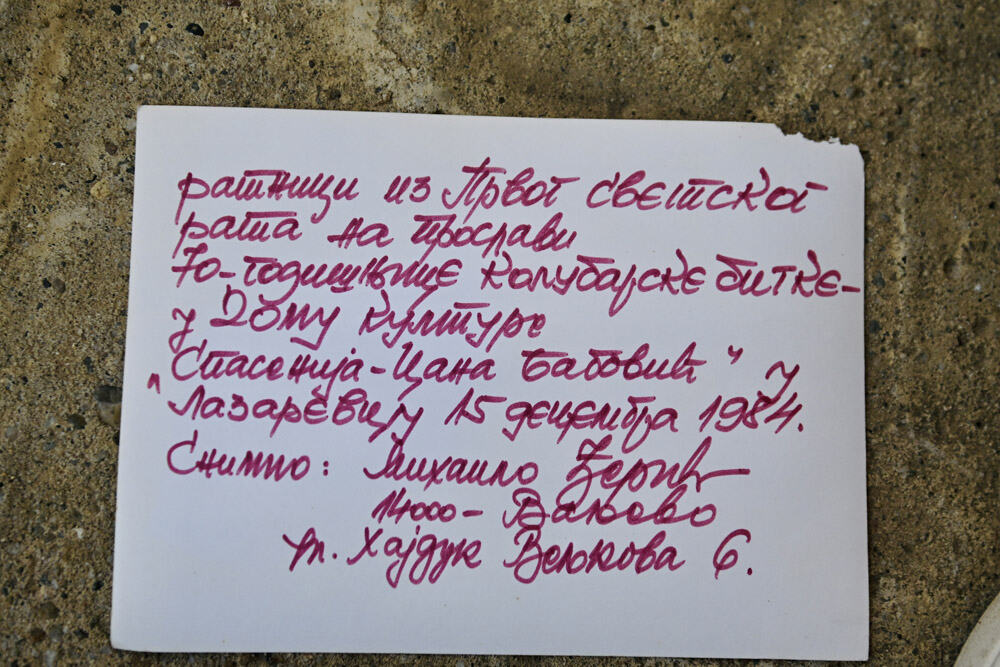 ратници из Првог светског
рата на прослави
70-годишњице Колубарске битке-
у Дому културе
"Спасенија-Цана Бабовић" у
Лазаревцу 15 децембра 1984.
Снимио: Михаило
14000- Ваљево
ул. Хајдук Вељкова 6.